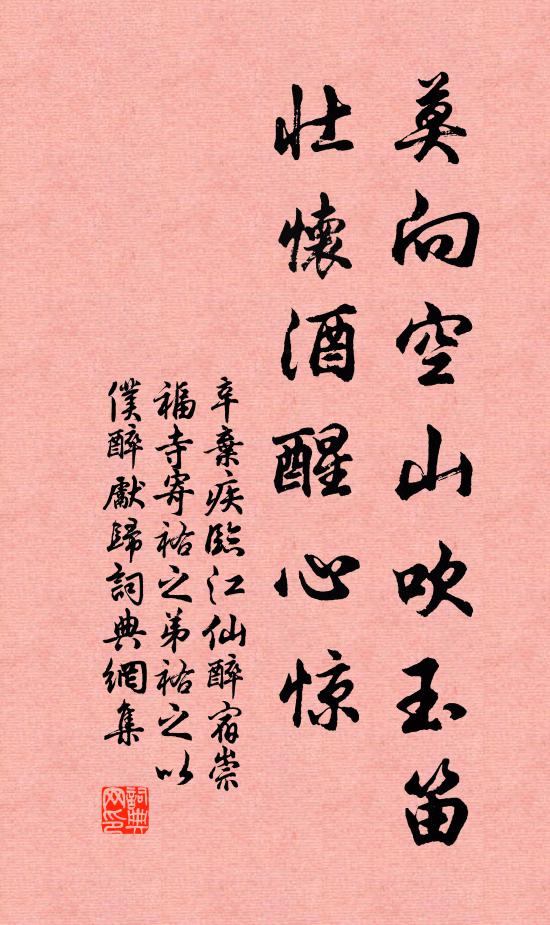 莫向空山吹玉笛
壮懷酒醒心惊
辛棄疾臨江仙醉宿崇
福寺寄祐之弟祐之以
僕醉先歸詞典網集
詞典网印